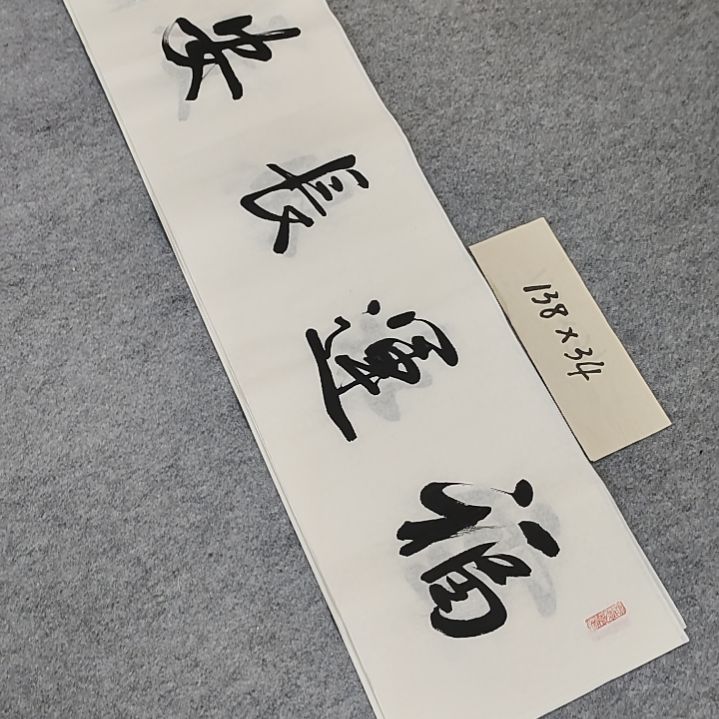 福運長安
138×34